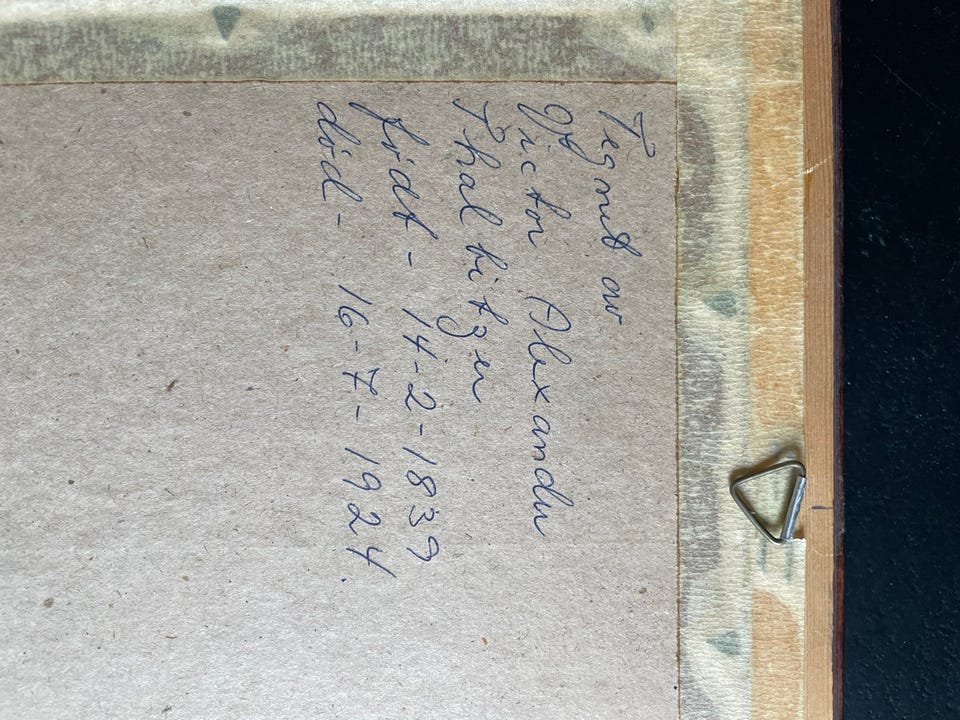 Tegnet av
Victor Alexander
Thalbitzer
født - 14-2-1839
død - 16-7-1924.